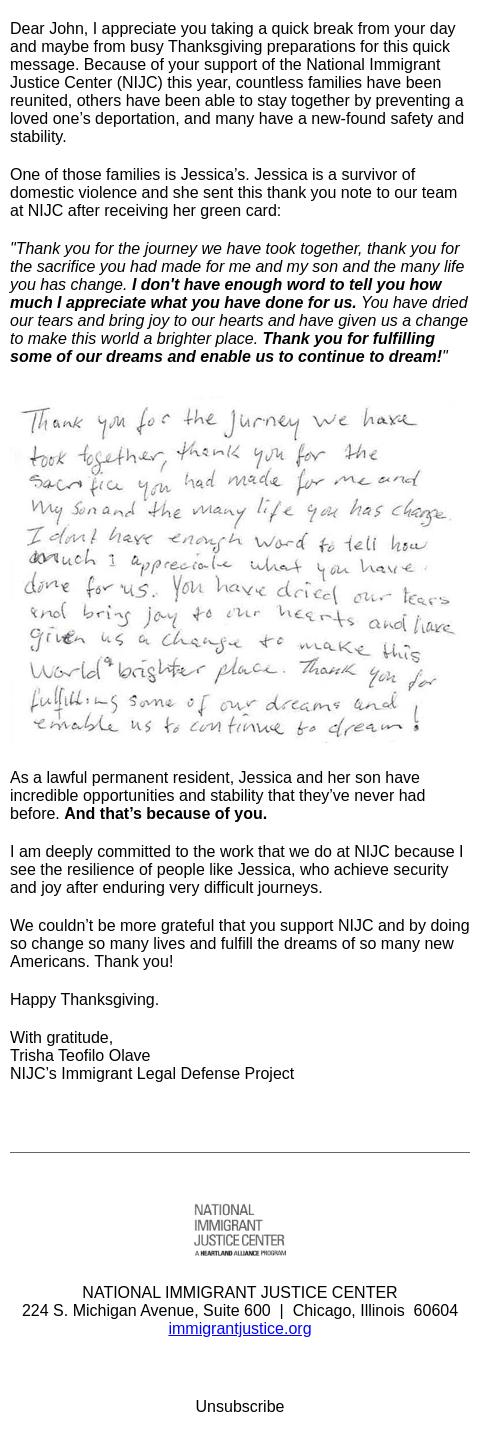 Dear John, I appreciate you taking a quick break from your day
and maybe from busy Thanksgiving preparations for this quick
message. Because of your support of the National Immigrant
Justice Center (NIJC) this year, countless families have been
reunited, others have been able to stay together by preventing a
loved one’s deportation, and many have a new-found safety and
stability.
One of those families is Jessica’s. Jessica is a survivor of
domestic violence and she sent this thank you note to our team
at NIJC after receiving her green card:
"Thank you for the journey we have took together, thank you for
the sacrifice you had made for me and my son and the many life
you has change. I don't have enough word to tell you how
much I appreciate what you have done for us. You have dried
our tears and bring joy to our hearts and have given us a change
to make this world a brighter place. Thank you for fulfilling
some of our dreams and enable us to continue to dream!"
Thank you for the Jurney we have
took together, thank you for the
Sacrifice you had made for me and
my son and the many life you has change.
I dont have enough word to tell how
much I appreciate what you have
done for us. You have dried our tears
and bring joy to our hearts and have
given us a change to make this
World a brighter place. Thank you for
fulfilling some of our dreams and
enable us to continue to dream!
As a lawful permanent resident, Jessica and her son have
incredible opportunities and stability that they’ve never had
before. And that’s because of you.
I am deeply committed to the work that we do at NIJC because I
see the resilience of people like Jessica, who achieve security
and joy after enduring very difficult journeys.
We couldn’t be more grateful that you support NIJC and by doing
so change so many lives and fulfill the dreams of so many new
Americans. Thank you!
Happy Thanksgiving.
With gratitude,
Trisha Teofilo Olave
NIJC’s Immigrant Legal Defense Project
NATIONAL
IMMIGRANT
JUSTICE CENTER
A HEARTLAND ALLIANCE PROGRAM
NATIONAL IMMIGRANT JUSTICE CENTER
224 S. Michigan Avenue, Suite 600 | Chicago, Illinois 60604
immigrantjustice.org
Unsubscribe